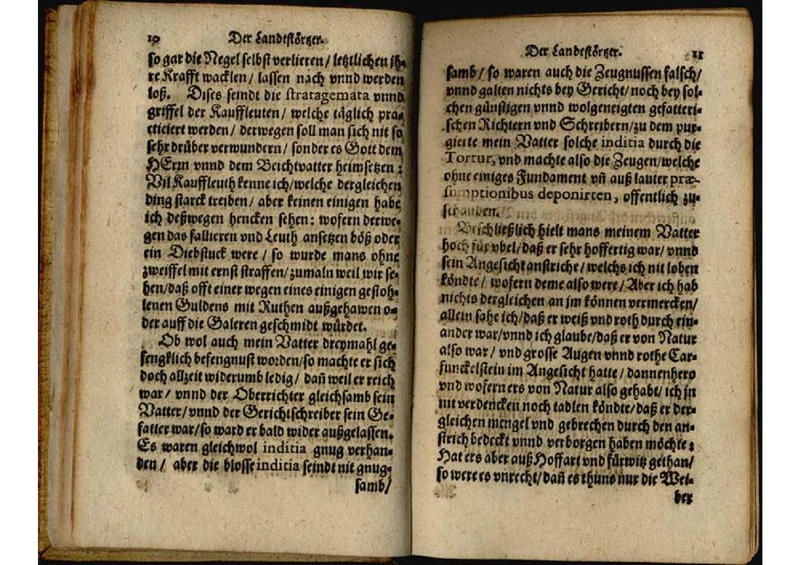 10
Der Landtstörtzer.
so gar die Negel selbst verlieren / letztlichen ih-
re Krafft wacklen / lassen nach vnnd werden
loß. Dises seindt die stratagemata vnnd
griffel der Kauffleuten / welche täglich pra-
cticiert werden / derwegen soll man sich nit so
sehr drüber verwundern / sonder es Gott dem
HErrn vnnd dem Beichtvatter heimsetzen:
Vil Kauffleuth kenne ich / welche dergleichen
ding starck treiben / aber keinen einigen habe
ich deßwegen hencken sehen: wofern derwe-
gen das fallieren vnd Leuth ansetzen böß oder
ein Diebstuck were / so wurde mans ohne
zweiffel mit ernst straffen / zumaln weil wir se-
hen / daß offt einer wegen eines einigen gestoh-
lenen Guldens mit Ruthen außgehawen o-
der auff die Galeren geschmidt würdet.
Ob wol auch mein Vatter dreymahl ge-
fengklich befengnust worden / so machte er sich
doch allzeit widerumb ledig / dañ weil er reich
war / vnnd der Oberrichter gleichsamb sein
Vatter / vnnd der Gerichtschreiber sein Ge-
fatter war / so ward er bald wider außgelassen.
Es waren gleichwol inditia gnug verhan-
den / aber die blosse inditia seindt nit gnug-
samb /
Der Landtstörtzer.
11
samb / so waren auch die Zeugnussen falsch /
vnnd galten nichts bey Gericht / noch bey sol-
chen günstigen vnnd wolgeneigten gefatteri-
schen Richtern vnd Schreibern / zu dem pur-
gierte mein Vatter solche inditia durch die
Tortur, vnd machte also die Zeugen / welche
ohne einiges Fundament vñ auß lauter præ-
sumptionibus deponirten, offentlich zu-
schanden.
Beschließlich hielt mans meinem Vatter
hoch für vbel / daß er sehr hoffertig war / vnnd
sein Angesicht anstriche / welchs ich nit loben
köndte / wofern deme also were / Aber ich hab
nichts dergleichen an jm können vermercken /
allein sahe ich / daß er weiß vnd roth durch ein-
ander war / vnnd ich glaube / daß er von Natur
also war / vnd grosse Augen vnnd rothe Car-
funckelstein im Angesicht hatte / dannenhero
vnd wofern ers von Natur also gehabt / ich jn
nit verdencken noch tadlen köndte / daß er der-
gleichen mängel vnd gebrechen durch den an-
strich bedeckt vnnd verborgen haben möchte:
Hat ers aber auß Hoffart vnd fürwitz gethan /
so were es vnrecht / dañ es thuns nur die Wei-
ber